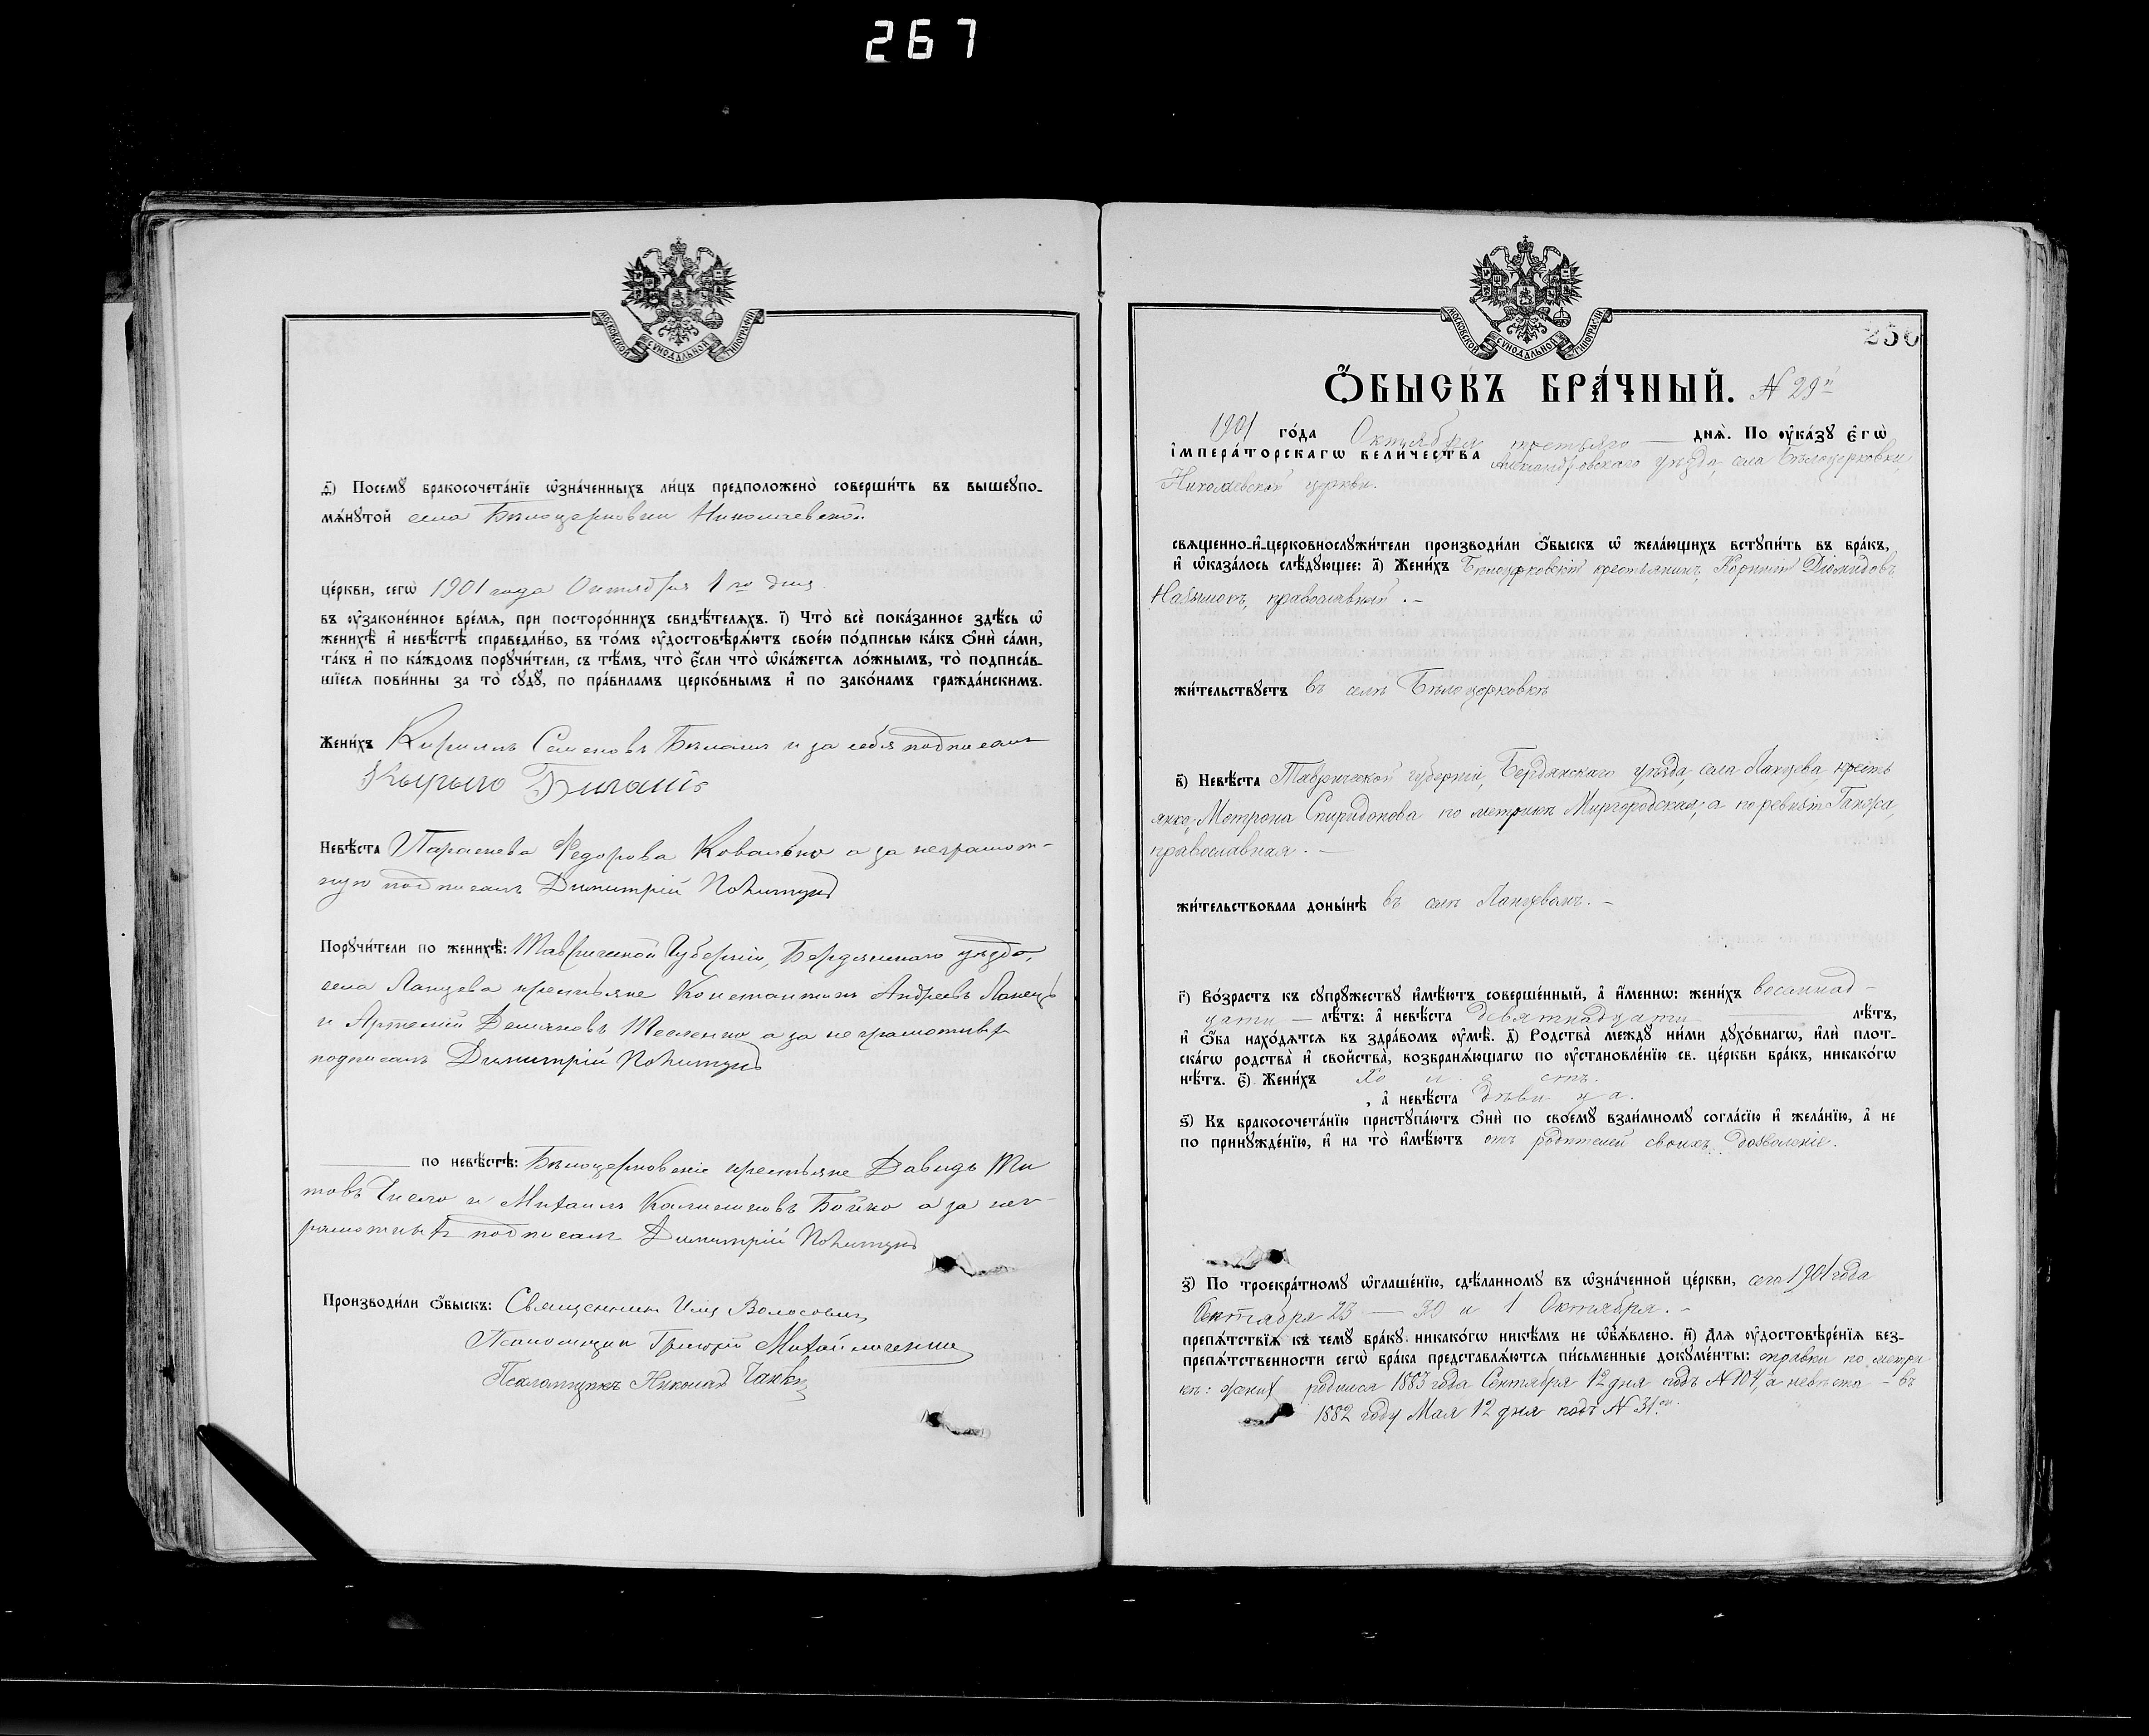 267
МОСКОВСКОЙ СУНОДАЛЬНОЙ ТИПОГРАФІИ
д҃) Посемꙋ бракосочета́нїе ѡ҆зна́ченныхъ ли́цъ предположено̀ соверши́ть въ вышеꙋпо-
мѧ́нꙋтой села Бѣлоцерковки Николаевской
це́ркви, сегѡ̀ 1901 года Октября 1го дня
въ ᲂу҆зако́ненное вре́мѧ, при посторо́ннихъ свидѣ́телѧхъ. і҃) Что̀ всѐ пока́занное здѣ́сь ѡ҆
женихѣ̀ и҆ невѣ́стѣ справедли́во, въ то́мъ ᲂу҆достовѣрѧ́ютъ свое́ю по́дписью ка́къ ѻ҆нѝ са́ми,
та́къ и҆ по ка́ждомъ порꙋчи́тели, съ тѣ́мъ, что̀ є҆́сли что̀ ѡ҆ка́жетсѧ ло́жнымъ, то̀ подписа́в-
шїесѧ пови́нны за то̀ сꙋдꙋ̀, по пра́виламъ церко́внымъ и҆ по зако́намъ гражда́нскимъ.
Жени́хъ Кириллъ Семеновъ Билашъ и за себя подписалъ
Кырыло Билашъ
Невѣ́ста Параскева Федорова Ковалько а за неграмот-
ную подписалъ Димитрій
Порꙋчи́тели по женихѣ̀: Таврической Губерніи, Бердянскаго уѣзда,
села Ланцева крестьяне Константинъ Андреевъ Ланецъ
и Артемій Демяновъ Тесленко а за неграмотныхъ
подписалъ Димитрій
по невѣ́стѣ: Бѣлоцерковскіе крестьяне Давидъ Ти
товъ и Михаилъ Калиниковъ Бойко а за нег-
рамотныхъ подписалъ Димитрій
Производи́ли ѻ҆́быскъ: Священникъ Илія Волосовичъ
Псаломщикъ Григорій Михайличенко
Псаломщикъ Николай
МОСКОВСКОЙ СУНОДАЛЬНОЙ ТИПОГРАФІИ
256
Ѻ҆́БЫСКЪ БРА́ЧНЫЙ. N 29й
1901 го́да Октября третьяго днѧ̀. По ᲂу҆ка́зꙋ є҆гѡ̀
і҆мпера́торскагѡ вели́чества Александровскаго уѣзда, села Бѣлоцерковки,
Николаевской церкви.
свѧщенно-и҆-церковнослꙋжи́тели производи́ли ѻ҆́быскъ ѡ҆ жела́ющихъ встꙋпи́ть въ бра́къ,
и҆ ѡ҆каза́лось слѣ́дꙋющее: а҃) Жени́хъ Бѣлоцерковскій крестьянинъ, Діомидовъ
православный. –
жи́тельствꙋетъ въ селѣ Бѣлоцерковкѣ
в҃) Невѣ́ста Таврической губерніи, Бердянскаго уѣзда, села Ланцева кресть
янка, Мотрона Спиридонова по метрикѣ Миргородская, а по ревизіи
православная. –
жи́тельствовала доны́нѣ въ селѣ Ланцевомъ. –
г҃) Во́зрастъ къ сꙋпрꙋ́жествꙋ и҆мѣ́ютъ соверше́нный, а҆ и҆́меннѡ: жени́хъ восемнад-
цати – лѣ́тъ: а҆ невѣ́ста девятнадцати лѣ́тъ,
и҆ ѻ҆́ба нахо́дѧтсѧ въ здра́вомъ ᲂу҆мѣ̀. д҃) Родства̀ междꙋ̀ ни́ми дꙋхо́внагѡ, и҆лѝ плот-
ска́гѡ родства̀ и҆ сво́йства̀, возбранѧ́ющагѡ по ᲂу҆становле́нїю св. це́ркви бра́къ, никако́гѡ
нѣ́тъ. є҃) Жени́хъ хо л о стъ.
, а҆ невѣ́ста дѣви ца.
ѕ҃) Къ бракосочета́нїю пристꙋпа́ютъ ѻ҆нѝ по своемꙋ̀ взаи́мномꙋ согла́сїю и҆ жела́нїю, а҆ не
по принꙋжде́нїю, и҆ на то̀ и҆мѣ́ютъ отъ родителей своихъ дозволеніе.
з҃) По троекра́тномꙋ ѡ҆глаше́нїю, сдѣ́ланномꙋ въ ѡ҆зна́ченной це́ркви, сего 1901 года
Сентября 23 – 30 и 1 Октября. –
препѧ́тствїѧ къ чемꙋ̀ бра́кꙋ никако́гѡ никѣ́мъ не ѡ҆б̾ѧ́влено. и҃) Длѧ ᲂу҆достовѣре́нїѧ без-
препѧ́тственности сегѡ̀ бра́ка представлѧ́ютсѧ пи́сьменные докꙋме́нты: справки по метри
кѣ: женихъ родился 1883 года Сентября 12 дня подъ N 104, а невѣста – въ
1882 году Мая 12 дня подъ N 31.